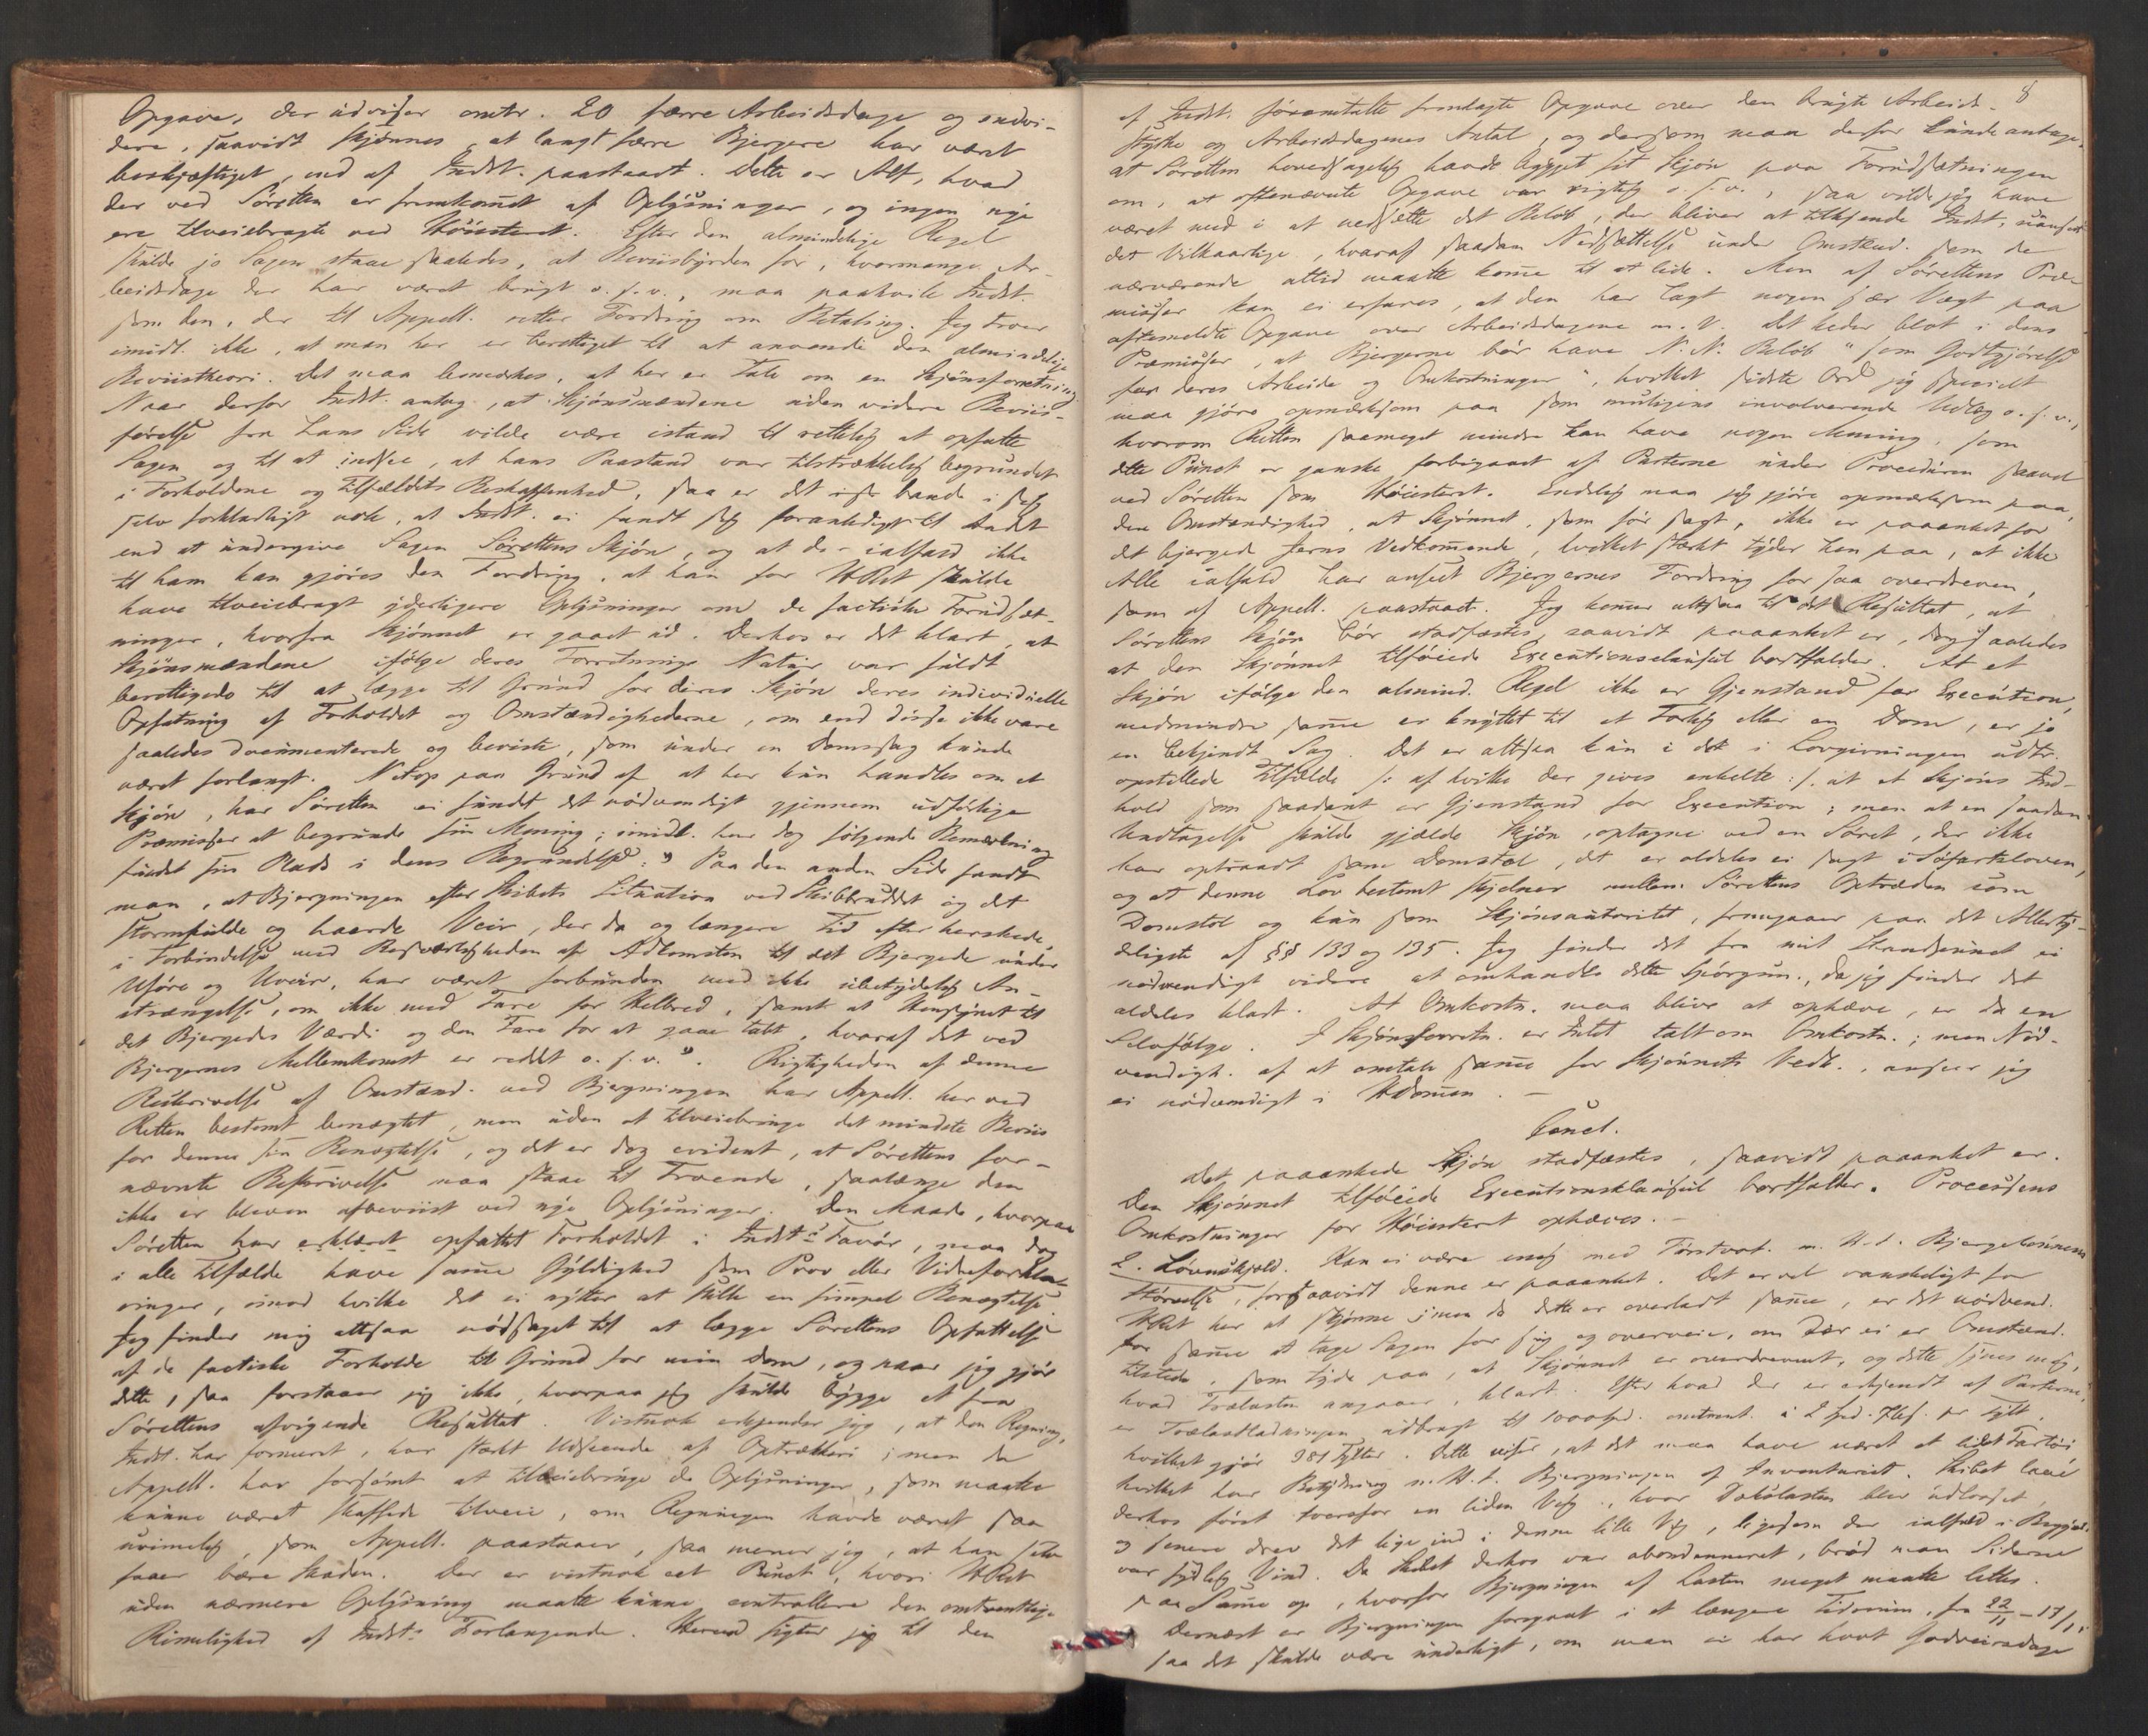 Opgave, der udviser omtr. 20 færre Arbeidsdage og endvi-
dere, saavidt skjønnes, at langt færre Bjergere har været
beskjæftiget, end af Indst. paastaaet. Dette er Alt, hvad
der ved Søretten er fremkommet af Oplysninger, og ingen nye
ere tilveiebragte ved Høiesteret. Efter den almindelige Regel
skulde jo Sagen staae saaledes, at Beviisbyrden for, hvormange Ar-
beidsdage der har været brugt o. s. v., maa paahvile Indst.
som den, der til Appell. retter Fordring om Betaling. Jeg troer
imidl. ikke, at man her er berettiget til at anvende den almindelige
Beviistheori. Det maa bemærkes, at her er Tale om en Skjønsforretning.
Naar derfor Indst. antog, at Skjønsmændene uden videre Beviis-
førelse fra hans Side vilde være istand til rettelig at opfatte
Sagen og til at indsee, at hans Paastand var tilstrækkelig begrundet
i Forholdene og Tilfældets Beskaffenhed, saa er det i sig
selv forklarligt nok, at Indst. ei fandt sig foranlediget til Andet
end at undergive Sagen Sørettens Skjøn, og at der ialfald ikke
til ham kan gjøres den Fordring, at han for HRet skulde
have tilveiebragt yderligere Oplysninger om de factiske Forudsæt-
ninger, hvorfra Skjønnet er gaaet ud. Derhos er det klart, at
Skjønsmændene ifølge deres Forretnings Natur var fuldt
berettigede til at lægge til Grund for deres Skjøn deres individuelle
Opfatning af Forholdet og Omstændighederne, om end disse ikke vare
saaledes documenterede og beviste, som under en Domssag kunde
været forlangt. Netop paa Grund af at her kun handles om et
Skjøn, har Søretten ei fundet det nødvendigt gjennem udførlige
Præmisser at begrunde sin Mening; imidl. har dog følgende Bemærkning
fundet sin Plads i dens Begrundelse: "Paa den anden Side fandt
man, at Bjergningen efter Skibets Situation ved Skibbruddet og det
stormfulde og haarde Veir, der da og længere Tid efter herskede,
i Forbindelse med Besværligheden af Adkomsten til det Bjergede under
Uføre og Uveir, har været forbunden med ikke ubetydelig An-
strængelse, om ikke med Fare for Helbred, samt at Hensynet til
det Bjergedes Værdi og den Fare for at gaae tabt, hvoraf det ved
Bjergernes Mellemkomst er reddet o. s. v." Rigtigheden af denne
Beskrivelse af Omstænd. ved Bjergningen har Appell. her ved
Retten bestemt benægtet, men uden at tilveiebringe det mindste Beviis
for denne sin Benægtelse, og det er dog evident, at Sørettens for-
nævnte Beskrivelse maa staae til Troende, saalænge den
ikke er bleven afbeviist ved nye Oplysninger. Den Maade, hvorpaa
Søretten har erklæret opfattet Forholdet i Indst.s Favør, maa dog
i alle Tilfælde have samme Gyldighed som Prov eller Vidneforkla-
ringer, imod hvilke det ei nytter at stille en simpel Benægtelse.
Jeg finder mig altsaa nødsaget til at lægge Sørettens Opfattelse
af de factiske Forholde til Grund for min Dom, og naar jeg gjør
dette, saa forstaaer jeg ikke, hvorpaa jeg skulde bygge et fra
Sørettens afvigende Resultat. Vistnok erkjender jeg, at den Regning,
Indst. har formeret, har stærkt Udseende af Optrækkeri; men da
Appell. har forsømt at tilveiebringe de Oplysninger, som maatte
kunne været skaffede tilveie, om Regningen havde været saa
urimelig, som Appell. paastaaer, saa mener jeg, at han selv
faaer bære Skaden. Der er vistnok eet Punct, hvori HRet
uden nærmere Oplysning maatte kunne controllere den omtrentlige
Rimelighed af Indst.s Forlangende. Herved sigter jeg til den
8
af Indst. foranstaltede fremlagte Opgave over den brugte Arbeids-
styrke og Arbeidsdagenes Antal, og dersom man derfor kunde antage,
at Søretten hovedsagelig havde bygget sit Skjøn paa Forudsætningen
om, at oftenævnte Opgave var rigtig o. s. v., saa vilde jeg have
været med i at nedsætte det Beløb, der bliver at tilkjende Indst., uanseet
det Vilkaarlige, hvoraf saadan Nedsættelse under Omstænd. som de
nærværende altid maatte komme til at lide. Men af Sørettens Præ-
misser kan ei erfares, at den har lagt nogen sær Vægt paa
oftemeldte Opgave over Arbeidsdagene m. V. Det heder blot i dens
Præmisser, at Bjergerne bør have N. N. Beløb "som Godtgjørelse
for deres Arbeide og Omkostninger", hvilket sidste Ord jeg specielt
maa gjøre opmærksom paa som muligens involverende Udlæg o. s. v.,
hvorom Retten saameget mindre kan have nogen Mening, som
dette Punct er ganske forbigaaet af Parterne under Proceduren saavel
ved Søretten som Høiesteret. Endelig maa jeg gjøre opmærksom paa,
den Omstændighed, at Skjønnet, som før sagt, ikke er paaanket for
det bjergede Jerns Vedkommende, hvilket stærkt tyder hen paa, at ikke
Alle ialfald har anseet Bjergernes Fordring for saa overdreven,
som af Appell. paastaaet. Jeg kommer altsaa til det Resultat, at
Sørettens Skjøn bør stadfæstes, saavidt paaanket er, dog saaledes
at den Skjønnet tilføiede Executionsclausul bortfalder. At et
Skjøn ifølge den almind. Regel ikke er Gjenstand for Execution,
medmindre samme er knyttet til et Forlig eller en Dom, er jo
en bekjendt Sag. Det er altsaa kun i det i Lovgivningen udtr.
opstillede Tilfælde /: af hvilke der gives enkelte :/ at et Skjøns Ind-
hold som saadant er Gjenstand for Execution; men at en saadan
Undtagelse skulde gjælde Skjøn, optagne ved en Søret, der ikke
har optraadt som Domstol, det er aldeles ei sagt i Søfartsloven,
og at denne Lov bestemt skjelner mellem Sørettens Optræden som
Domstol og kun som Skjønsautoritet, fremgaaer paa det Allerty-
deligste af §§ 133 og 135. Jeg finder det fra mit Standpunct ei
nødvendigt videre at omhandle dette Spørgsm., da jeg finder det
aldeles klart. At Omkostn. maa blive at ophæve, er da en
Selvfølge. I Skjønsforretn. er Intet talt om Omkostn.; men Nød-
vendigh. af at omtale samme for Skjønnets Vedk., anseer jeg
ei nødvendigt i HDommen. —
Concl.
Det paaankede Skjøn stadfæstes, saavidt paaanket er.
Den Skjønnet tilføiede Executionsklausul bortfalder. Processens
Omkostninger for Høiesteret ophæves. —
2. Løvenskjold. Kan ei være enig med Førstvot. m. H. t. Bjergelønnens
Størrelse, forsaavidt denne er paaanket. Det er vel vanskeligt for
HRet her at skjønne; men da dette er overladt samme, er det nødvend.
for samme at tage Sagen for sig og overveie, om der ei er Omstænd.
tilstede, som tyde paa, at Skjønnet er overdrevent, og dette synes mig,
hvad Trælasten angaaer, klart. Efter hvad der er erkjendt af Parterne,
er Trælastladningen udbragt til 1000 Spd. omtrent à 2 Spd. pr Tylt
hvilket gjør 981 Tylter. Dette viser, at det maa have været et lidet Fartøi
hvilket har Betydning m. H. t. Bjergningen af Inventariet. Skibet laae
derhos først tversfor en liden Vig, hvor Dækslasten blev udlosset,
og senere drev det lige ind i denne lille Vig, ligesom der ialfald i Begynd.
var sydlig Vind. Da Skibet derhos var abandonneret, brød man Siderne
paa Samme op, hvorfor Bjergningen af Lasten meget maatte lettes.
Dernæst er Bjergningen foregaaet i et længere Tidsrum, fra 22/11 – 17/1,
saa det skulde være underligt, om man ei har havt Godveirsdage